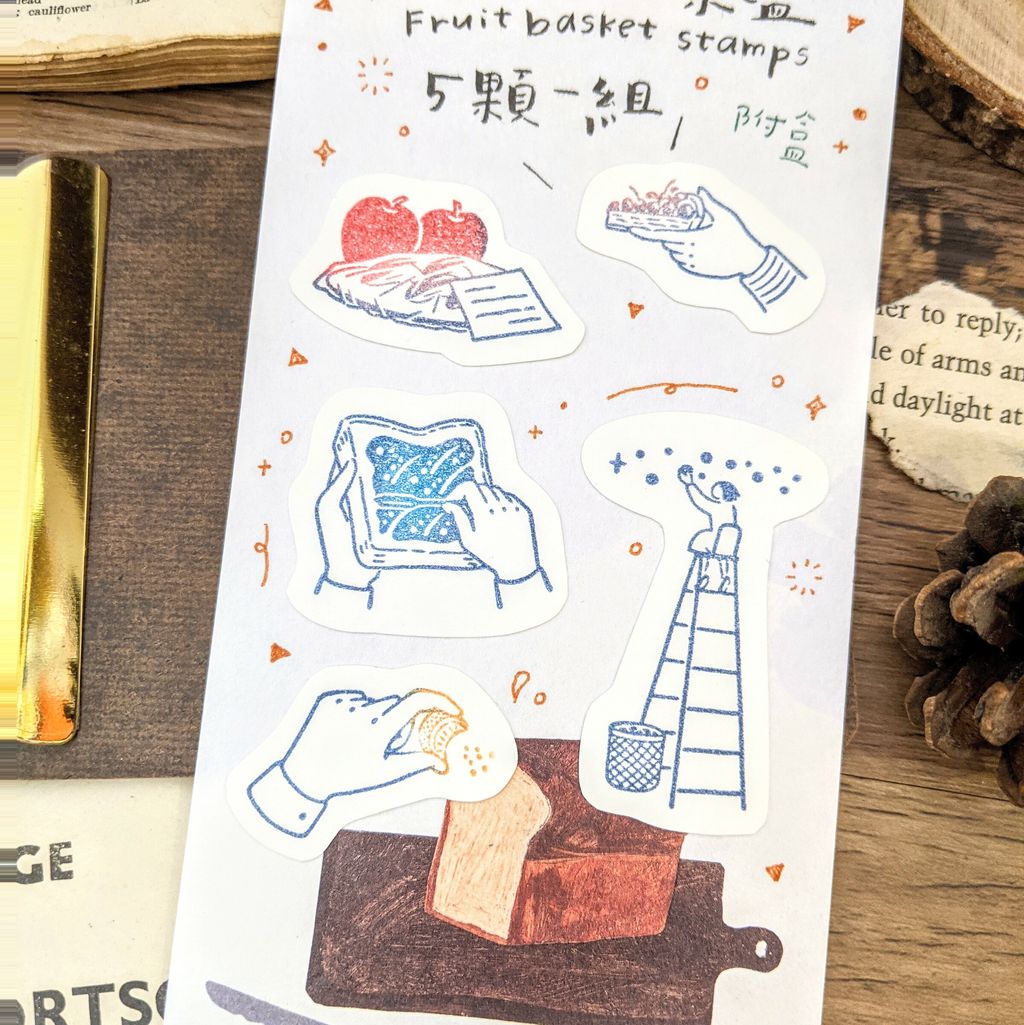 ; cauliflower
Fruit basket stamps
5顆一組
附盒
to reply;
le of arms an
d daylight at
GE